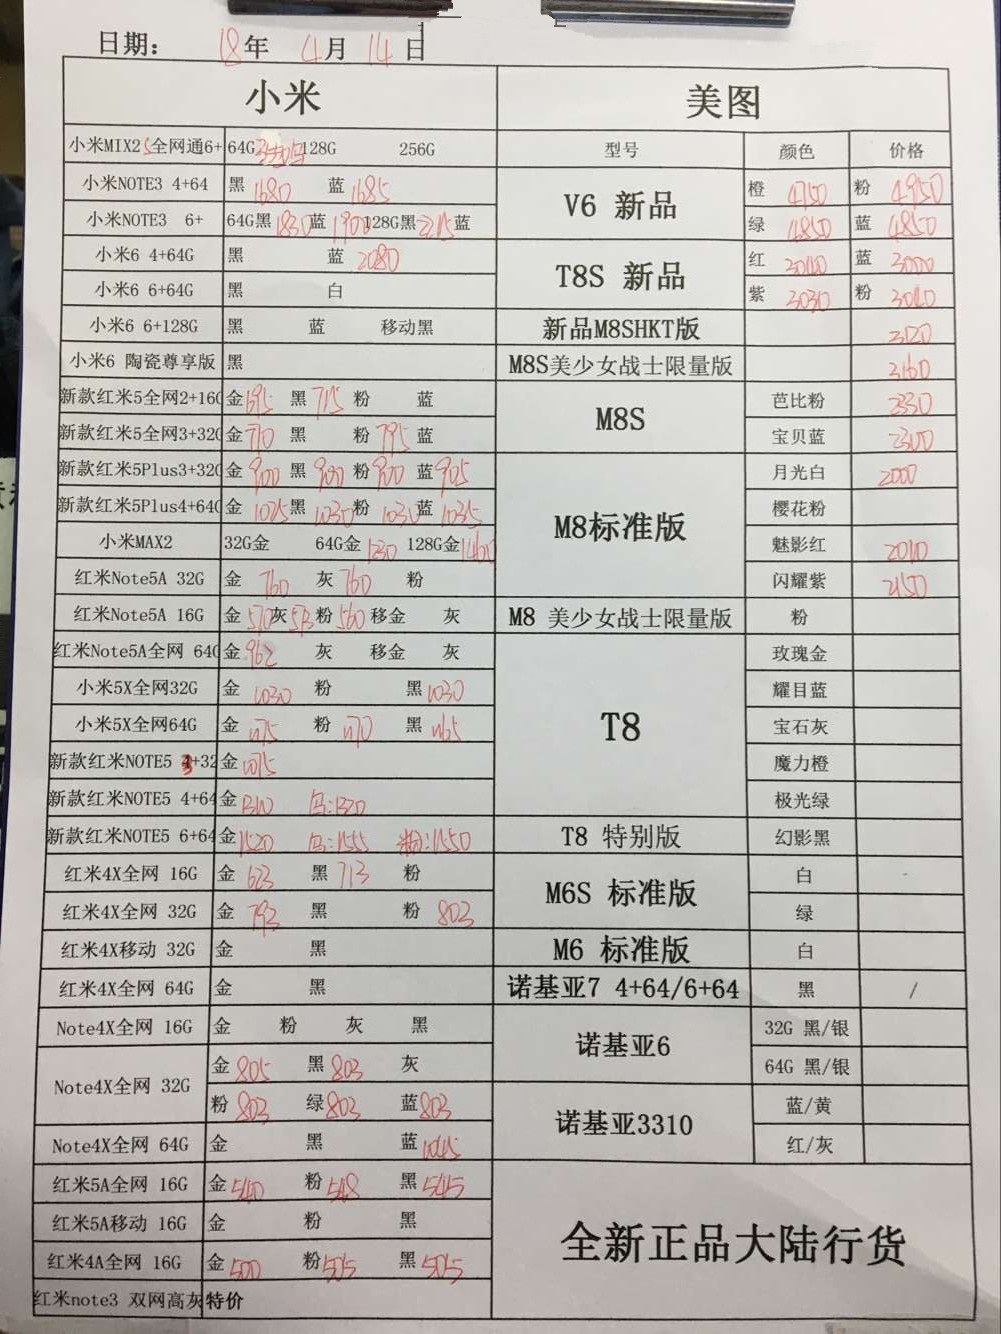 日期： 18年 4月 14日
小米 美图
小米MIX2S全网通6+ 64G 128G 256G 型号 颜色 价格
小米NOTE3 4+64 黑 1680 蓝 1685
V6 新品 橙 4750 粉 4950
小米NOTE3 6+ 64G黑 1830 蓝 1900 128G黑 蓝
绿 4850 蓝 4850
小米6 4+64G 黑 蓝 2080
T8S 新品 红 蓝 3000
小米6 6+64G 黑 白
紫 3030 粉 3040
小米6 6+128G 黑 蓝 移动黑
新品M8SHKT版 3120
小米6 陶瓷尊享版 黑
M8S美少女战士限量版 3160
新款红米5全网2+16G 金 695 黑 715 粉 蓝
M8S 芭比粉 2330
新款红米5全网3+32G 金 770 黑 粉 795 蓝
宝贝蓝 2300
新款红米5Plus3+32G 金 900 黑 900 粉 900 蓝 905
M8标准版 月光白 2000
新款红米5Plus4+64G 金 1025 黑 1030 粉 1030 蓝 1035
樱花粉
小米MAX2 32G金 64G金 128G金
魅影红 2010
红米Note5A 32G 金 760 灰 760 粉
闪耀紫 2150
红米Note5A 16G 金 570 灰 573 粉 560 移金 灰
M8 美少女战士限量版 粉
红米Note5A全网 64G 金 962 灰 移金 灰
T8 玫瑰金
小米5X全网32G 金 1030 粉 黑 1030
耀目蓝
小米5X全网64G 金 1175 粉 1170 黑 1165
宝石灰
新款红米NOTE5 3+32 金 1075
魔力橙
新款红米NOTE5 4+64 金 1310 乌:1320
极光绿
新款红米NOTE5 6+64 金 1520 乌:1555 粉:1550
T8 特别版 幻影黑
红米4X全网 16G 金 623 黑 713 粉
M6S 标准版 白
红米4X全网 32G 金 793 黑 粉 803
绿
红米4X移动 32G 金 黑
M6 标准版 白
红米4X全网 64G 金 黑
诺基亚7 4+64/6+64 黑 /
Note4X全网 16G 金 粉 灰 黑
诺基亚6 32G 黑/银
Note4X全网 32G 金 805 黑 803 灰
64G 黑/银
粉 803 绿 803 蓝 803
诺基亚3310 蓝/黄
Note4X全网 64G 金 黑 蓝 1045
红/灰
红米5A全网 16G 金 540 粉 548 黑 545
红米5A移动 16G 金 粉 黑
全新正品大陆行货
红米4A全网 16G 金 500 粉 505 黑 505
红米note3 双网高灰 特价